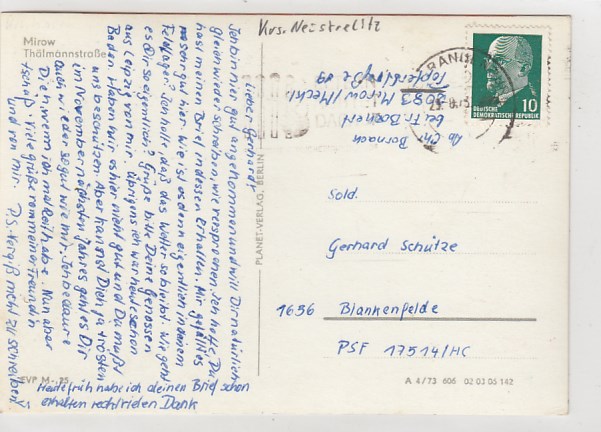 Krs. Neustrelitz
Mirow
Thälmannstraße
Lieber Gerhard!
Ich bin hier gut angekommen und will Dir natürlich
gleich wieder schreiben, wie versprochen. Ich hoffe, Du
hast meinen Brief indessen erhalten. Mir gefällt es
ganz gut hier. Wie ist es denn eigentlich in deinem
Feldlager? Ich hoffe, daß das Wetter so bleibt. Wie geht
es Dir so eigentlich? Grüße bitte Deine Genossen
aus Leipzig von mir. Übrigens ich war heute schon
Baden. Haben wir es hier nicht gut und Du mußt
uns bewachen. Aber kannst Dich ja trösten
im November nächsten Jahres geht es Dir
auch wieder so gut wie mir. Ich bedaure
Dich wenn ich mal Zeit habe. Nun aber
tschüß. Viele Grüße von meiner Freundin
und von mir. P.S. Vergiß nicht zu schreiben!
Heute früh habe ich deinen Brief schon
erhalten recht vielen Dank
EVP M -,25
PLANET-VERLAG, BERLIN
Ab Chr. Bornack
bei Fr. Bocher
2083 Mirow/Meckl.
Töpferstraße 19
DEUTSCHE
DEMOKRATISCHE REPUBLIK
10
Sold.
Gerhard Schütze
1636 Blankenfelde
PSF 17514/HC
A 4/73 606 02 03 05 142